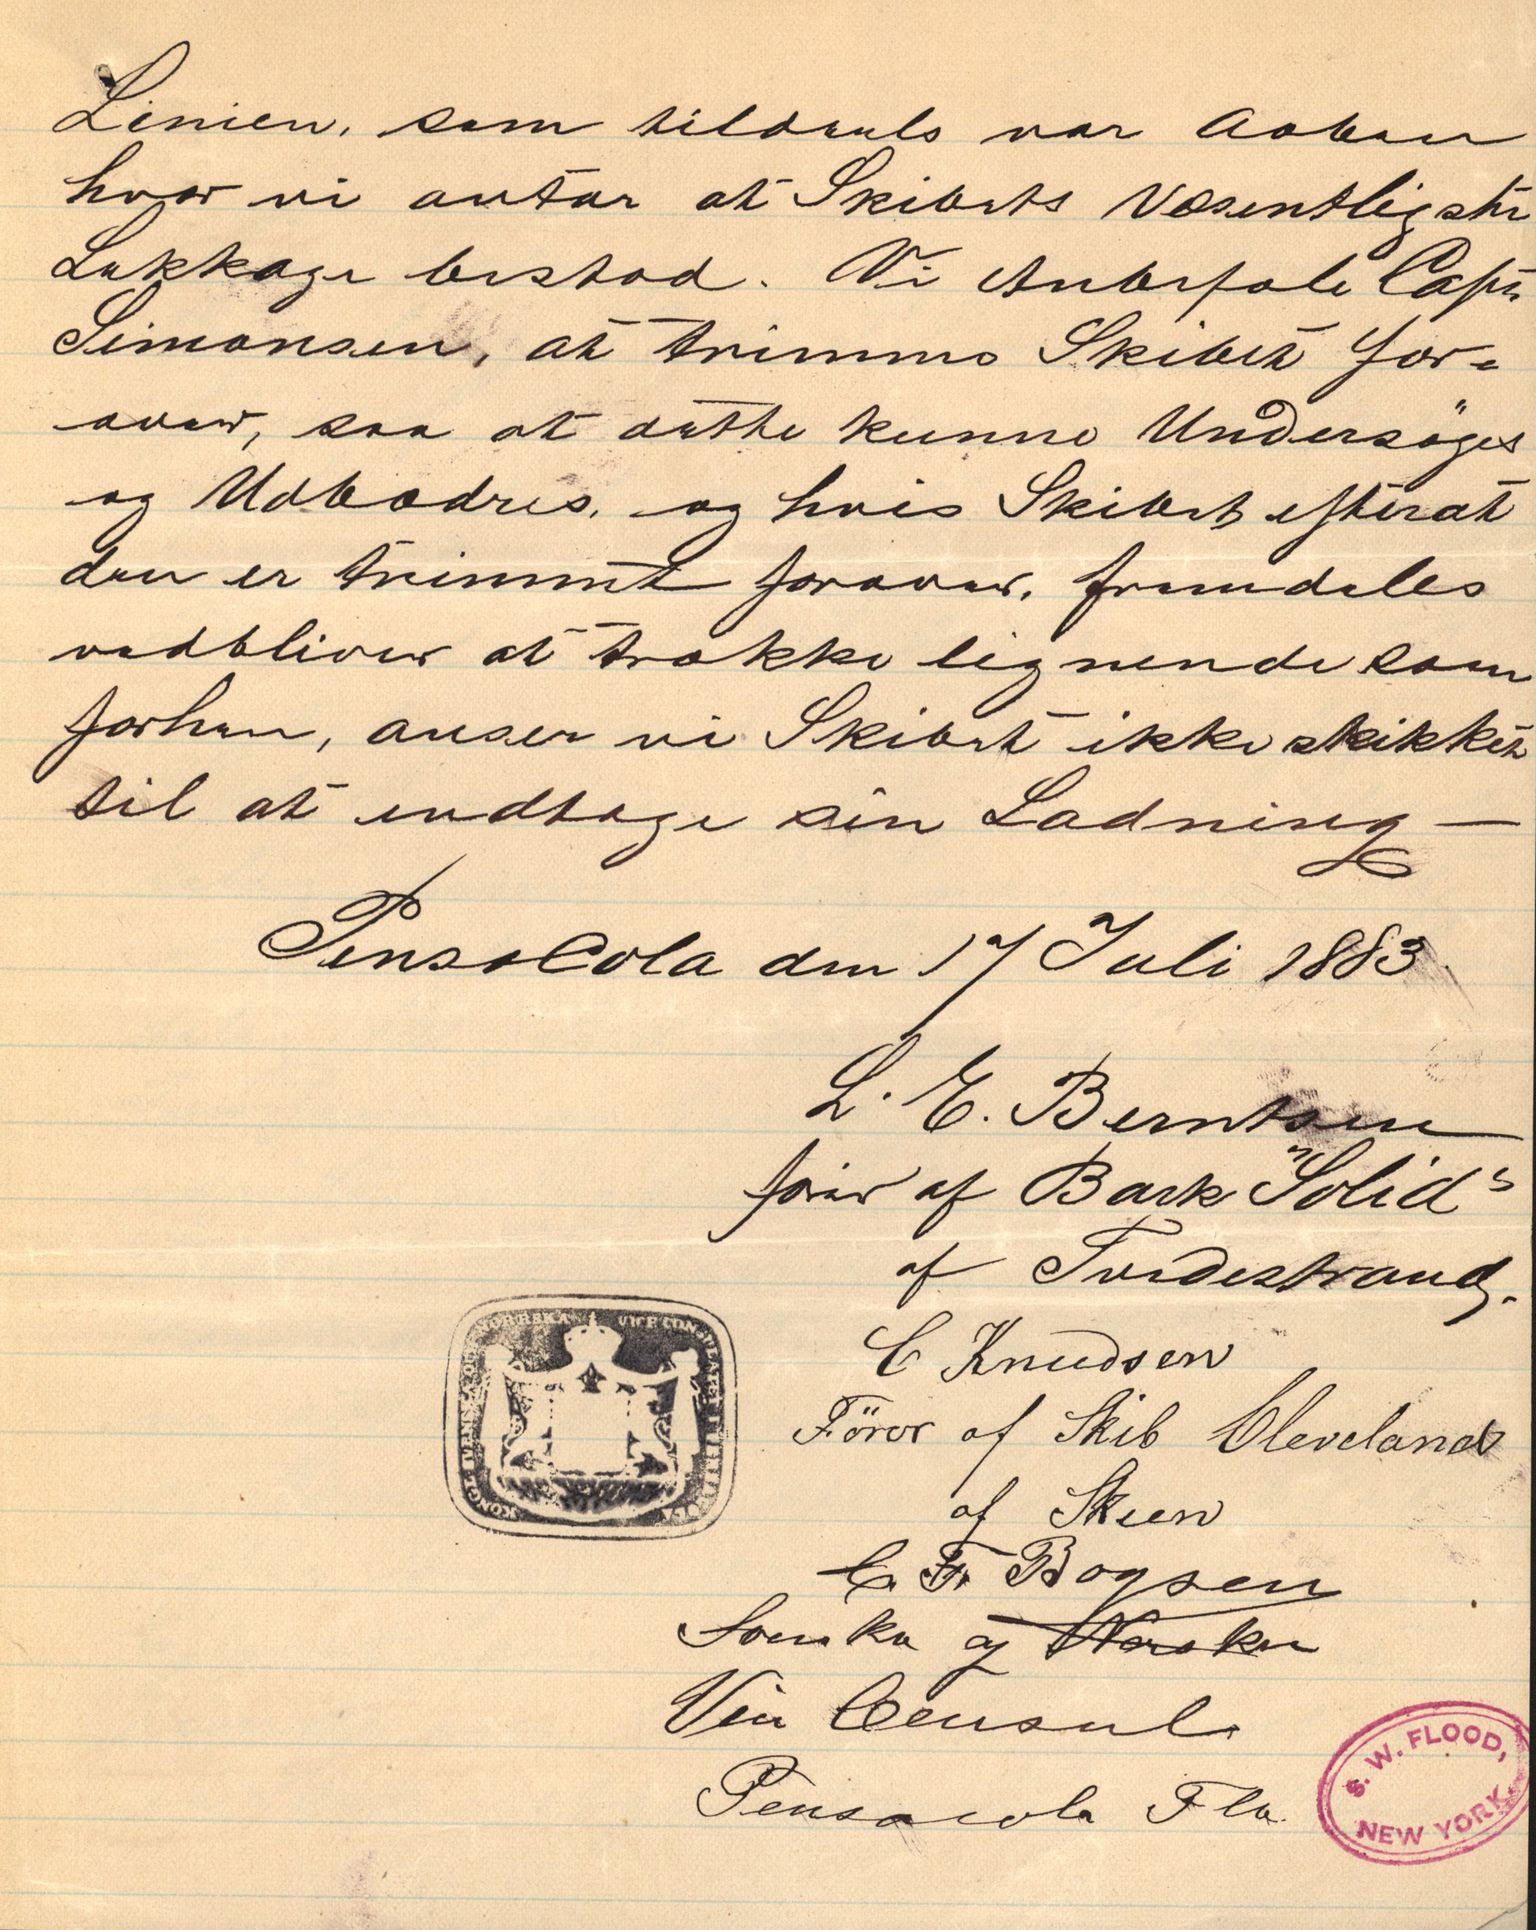 Linien, som tildeels var Aaben
hvor vi antar at Skibets Væsentligste
Lækkage bestod. Vi Anbefale Capt
Simonsen, at trimme Skibet for-
over, saa at dette kunne Undersöges
og Udbedres, og hvis Skibet efterat
den er trimmet forover, fremdeles
vedbliver at trække lignende som
forhen, anser vi Skibet ikke skikket
til at indtage sin Ladning —
Pensacola den 17 Juli 1883
L. E. Berntsen
förer af Bark "Solid"
af Tvedestrand.
C Knudsen
Förer af Skib Cleveland
af Skien
C. F. Boysen
Svenska og Norska
Vice Consul
Pensacola Fla.
S. W. FLOOD,
NEW YORK.